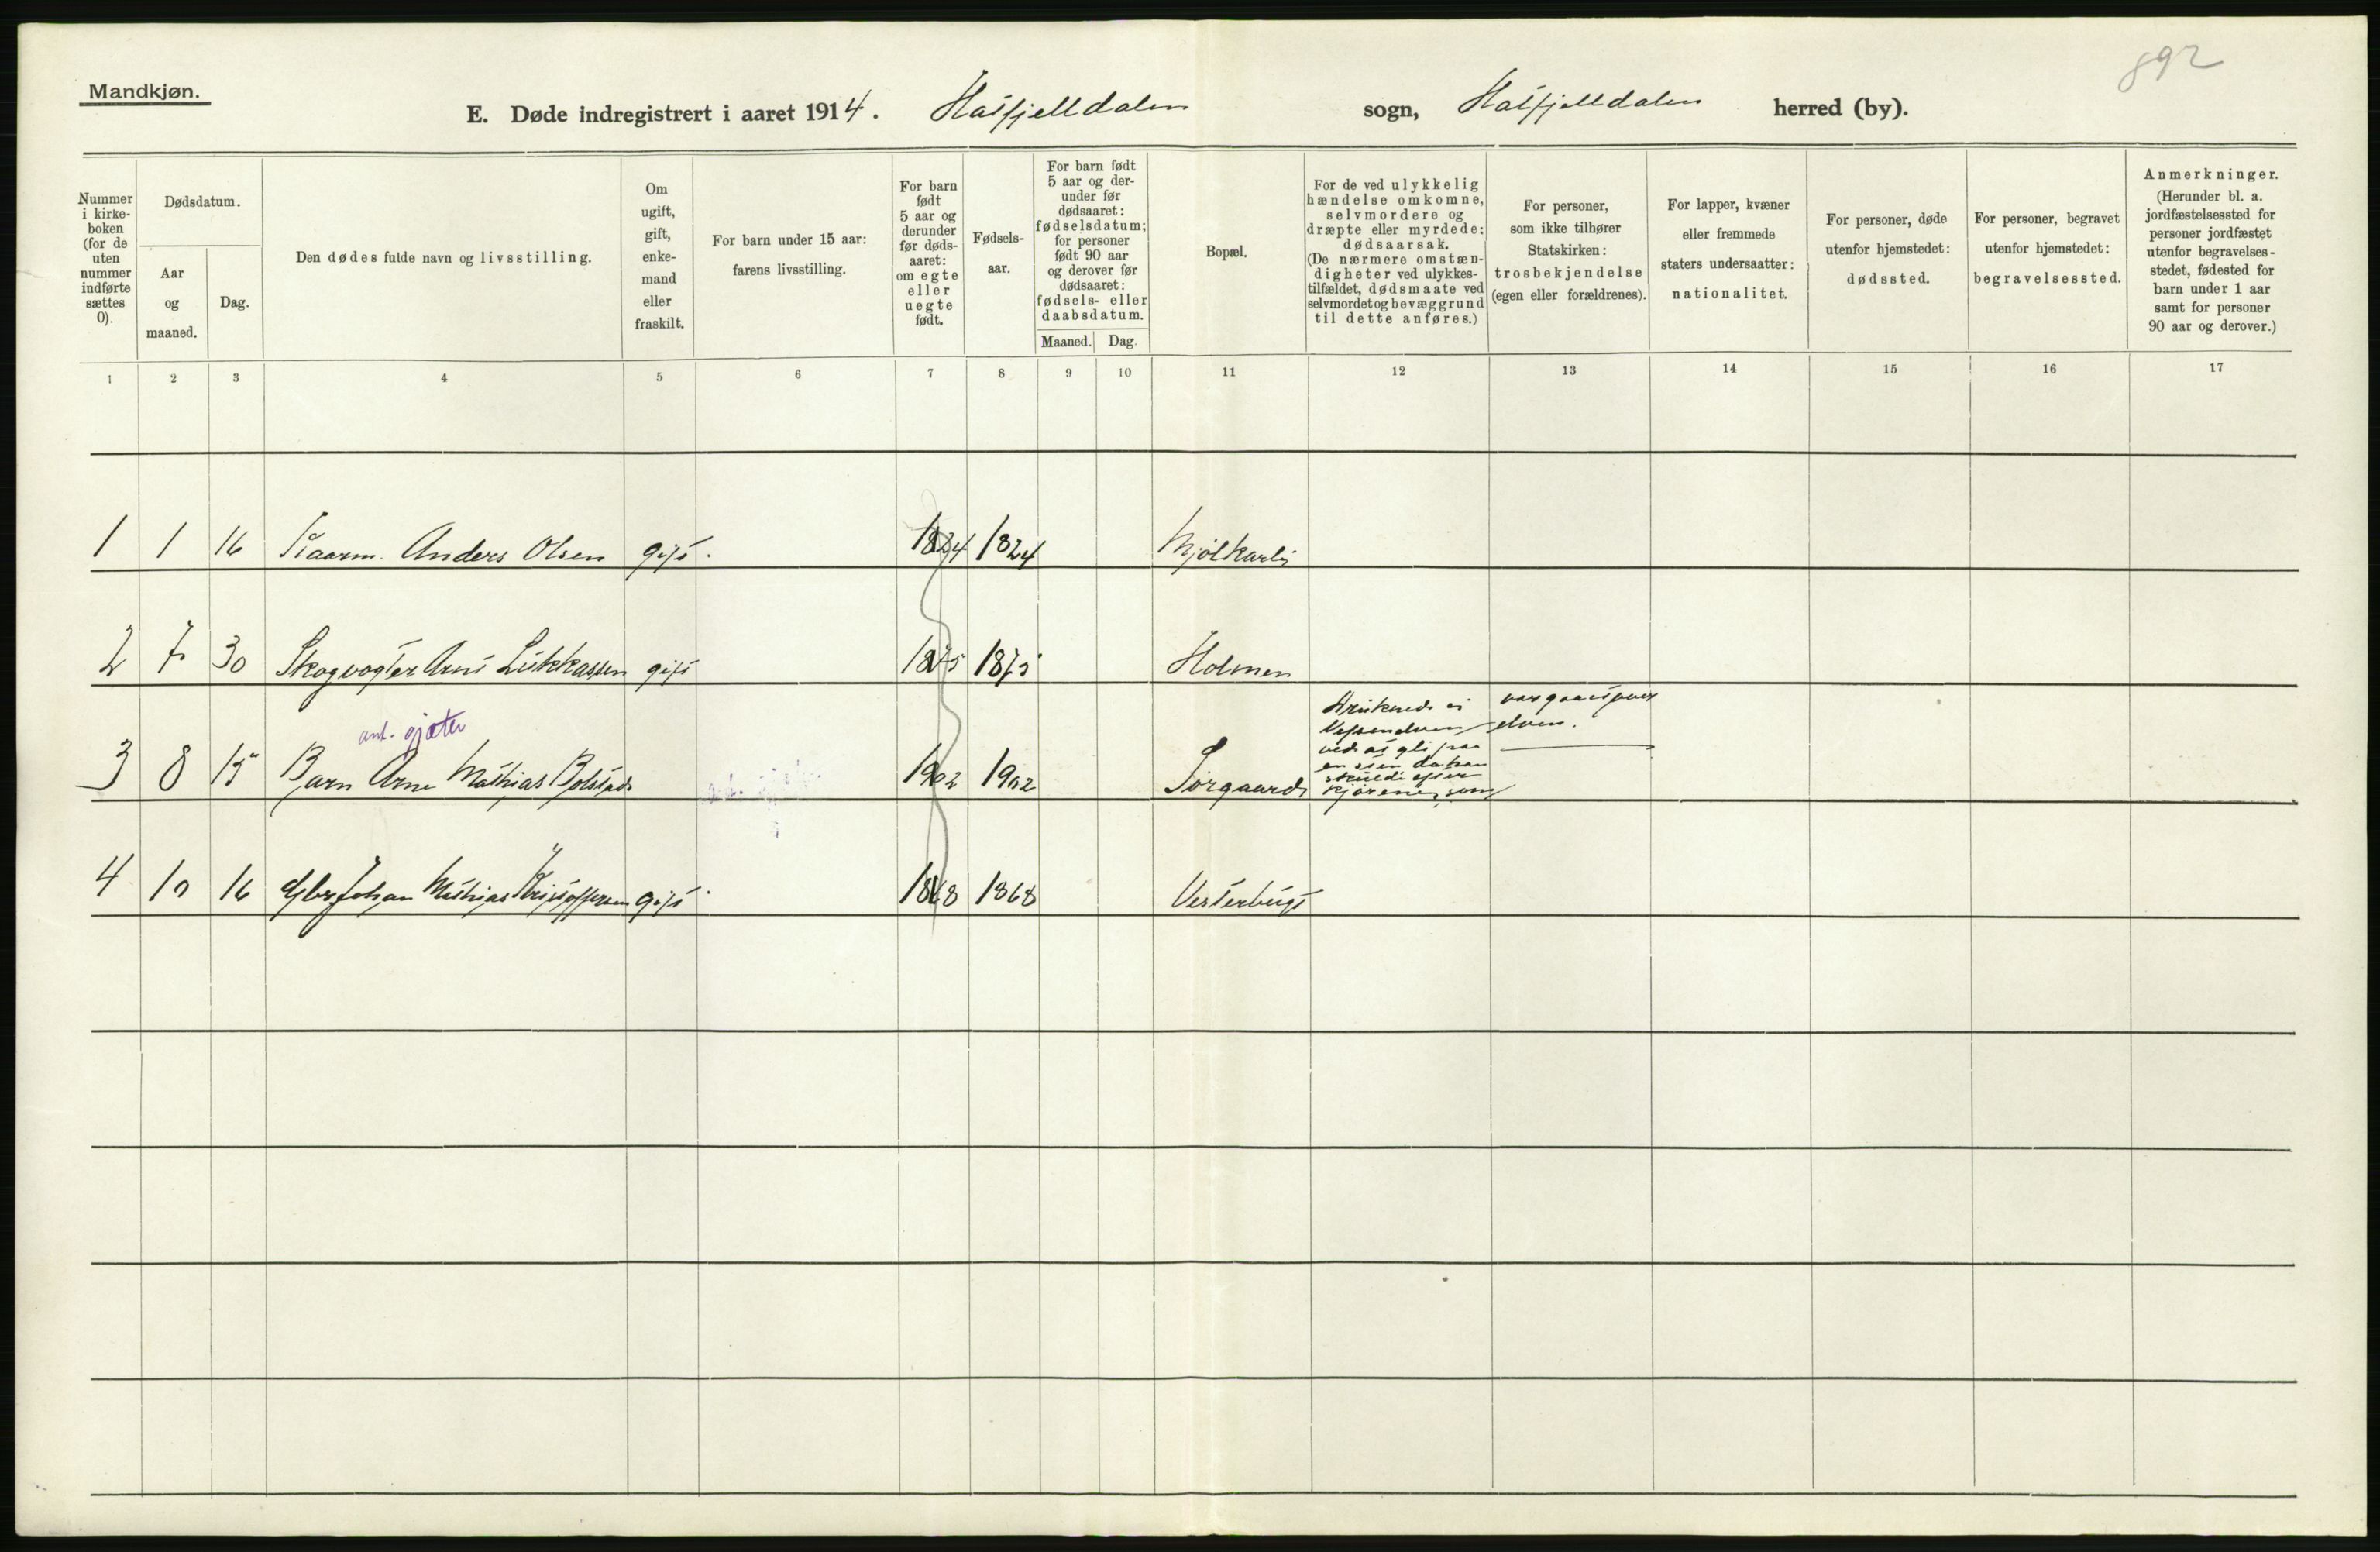 892
Mandkjøn.
E. Døde indregistrert i aaret 1914. Hatfjelldalen sogn, Hatfjelldalen herred (by).
Nummer i kirkeboken (for de uten nummer indførte sættes 0).
Dødsdatum.
Aar og maaned.
Dag.
Den dødes fulde navn og livsstilling.
Om ugift, gift, enkemand eller fraskilt.
For barn under 15 aar: farens livsstilling.
For barn født 5 aar og derunder før dødsaaret: om egte eller uegte født.
Fødselsaar.
For barn født 5 aar og derunder før dødsaaret: fødselsdatum; for personer født 90 aar og derover før dødsaaret: fødsels- eller daabsdatum.
Maaned. Dag.
Bopæl.
For de ved ulykkelig hændelse omkomne, selvmordere og dræpte eller myrdede: dødsaarsak. (De nærmere omstændigheter ved ulykkestilfældet, dødsmaate ved selvmordet og bevæggrund til dette anføres.)
For personer, som ikke tilhører Statskirken: trosbekjendelse (egen eller forældrenes).
For lapper, kvæner eller fremmede staters undersaatter: nationalitet.
For personer, døde utenfor hjemstedet: dødssted.
For personer, begravet utenfor hjemstedet: begravelsessted.
Anmerkninger. (Herunder bl. a. jordfæstelsessted for personer jordfæstet utenfor begravelsesstedet, fødested for barn under 1 aar samt for personer 90 aar og derover.)
1 2 3 4 5 6 7 8 9 10 11 12 13 14 15 16 17
1 1 16 Kaarm. Anders Olsen gift. 1824 1824 Mjølkarli
2 7 30 Skogvogter Arnt Lukkassen gift 1875 1875 Holmen
ant. gjæter
3 8 15 Barn Arne Mathias Bolstad 1902 1902 Sørgaard
Druknede i
Vefsenelven
ved at gli paa
en sten da han
skulde efter
kjørene, som
var gaaet over
elven.
4 10 16 Gbr Johan Mathias Kristoffersen gift 1868 1868 Vesterbugt